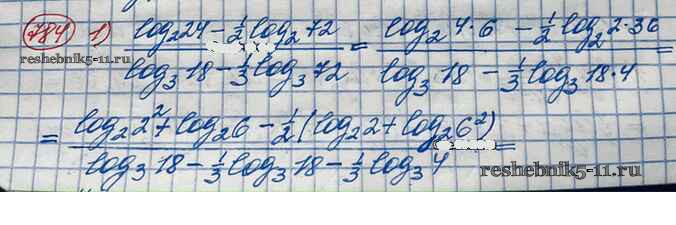 784 1) (log₂24 - ½log₂72) / (log₃18 - ⅓log₃72) = (log₂4·6 - ½log₂2·36) / (log₃18 - ⅓log₃18·4) =
reshebnik5-11.ru
= (log₂2² + log₂6 - ½(log₂2 + log₂6²)) / (log₃18 - ⅓log₃18 - ⅓log₃4) =
reshebnik5-11.ru